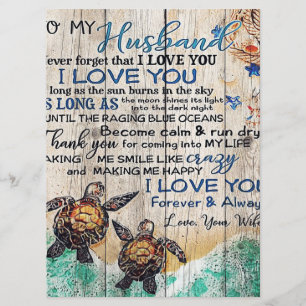 O MY
Husband
ever forget that I LOVE YOU
I LOVE YOU
long as the sun burns in the sky
S LONG AS the moon shines its light
into the dark night
UNTIL THE RAGING BLUE OCEANS
Become calm & run dry
Thank you for coming into MY LIFE
AKING ME SMILE LIKE crazy
AND MAKING ME HAPPY
I LOVE YOU
Forever & Alway
Love, Your Wife